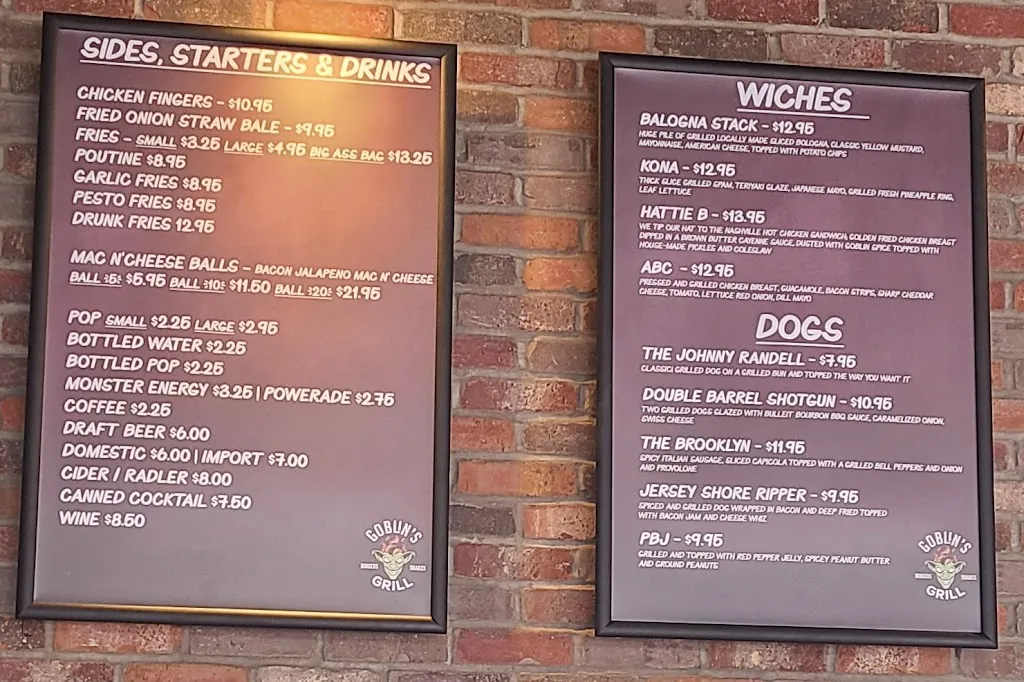 SIDES, STARTERS & DRINKS
CHICKEN FINGERS - $10.95
FRIED ONION STRAW BALE - $9.95
FRIES - SMALL $3.25 LARGE $4.95 BIG ASS BAG $13.25
POUTINE $8.95
GARLIC FRIES $8.95
PESTO FRIES $8.95
DRUNK FRIES 12.95
MAC N'CHEESE BALLS - BACON JALAPENO MAC N' CHEESE
BALL :5: $5.95 BALL :10: $11.50 BALL :20: $21.95
POP SMALL $2.25 LARGE $2.95
BOTTLED WATER $2.25
BOTTLED POP $2.25
MONSTER ENERGY $3.25 | POWERADE $2.75
COFFEE $2.25
DRAFT BEER $6.00
DOMESTIC $6.00 | IMPORT $7.00
CIDER / RADLER $8.00
CANNED COCKTAIL $7.50
WINE $8.50
GOBLIN'S
BURGERS SHAKES
GRILL
WICHES
BALOGNA STACK - $12.95
HUGE PILE OF GRILLED LOCALLY MADE SLICED BOLOGNA, CLASSIC YELLOW MUSTARD,
MAYONNAISE, AMERICAN CHEESE, TOPPED WITH POTATO CHIPS
KONA - $12.95
THICK SLICE GRILLED SPAM, TERIYAKI GLAZE, JAPANESE MAYO, GRILLED FRESH PINEAPPLE RING,
LEAF LETTUCE
HATTIE B - $13.95
WE TIP OUR HAT TO THE NASHVILLE HOT CHICKEN SANDWICH. GOLDEN FRIED CHICKEN BREAST
DIPPED IN A BROWN BUTTER CAYENNE SAUCE, DUSTED WITH GOBLIN SPICE TOPPED WITH
HOUSE-MADE PICKLES AND COLESLAW
ABC - $12.95
PRESSED AND GRILLED CHICKEN BREAST, GUACAMOLE, BACON STRIPS, SHARP CHEDDAR
CHEESE, TOMATO, LETTUCE RED ONION, DILL MAYO
DOGS
THE JOHNNY RANDELL - $7.95
CLASSIC! GRILLED DOG ON A GRILLED BUN AND TOPPED THE WAY YOU WANT IT
DOUBLE BARREL SHOTGUN - $10.95
TWO GRILLED DOGS GLAZED WITH BULLEIT BOURBON BBQ SAUCE, CARAMELIZED ONION,
SWISS CHEESE
THE BROOKLYN - $11.95
SPICY ITALIAN SAUSAGE, SLICED CAPICOLA TOPPED WITH A GRILLED BELL PEPPERS AND ONION
AND PROVOLONE
JERSEY SHORE RIPPER - $9.95
SPICED AND GRILLED DOG WRAPPED IN BACON AND DEEP FRIED TOPPED
WITH BACON JAM AND CHEESE WHIZ
PBJ - $9.95
GRILLED AND TOPPED WITH RED PEPPER JELLY, SPICEY PEANUT BUTTER
AND GROUND PEANUTS
GOBLIN'S
BURGERS SHAKES
GRILL